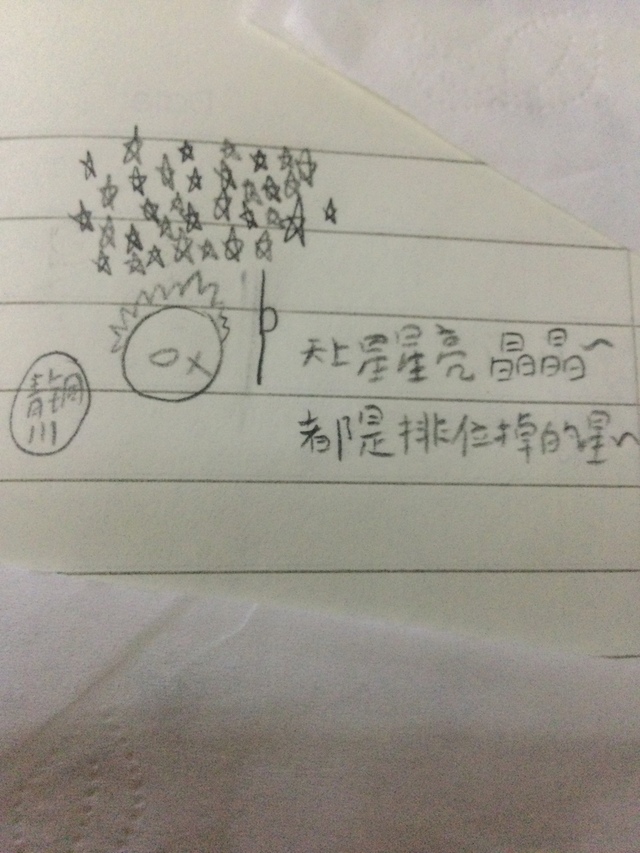 青铜
III
天上星星亮晶晶~
都是排位掉的星~